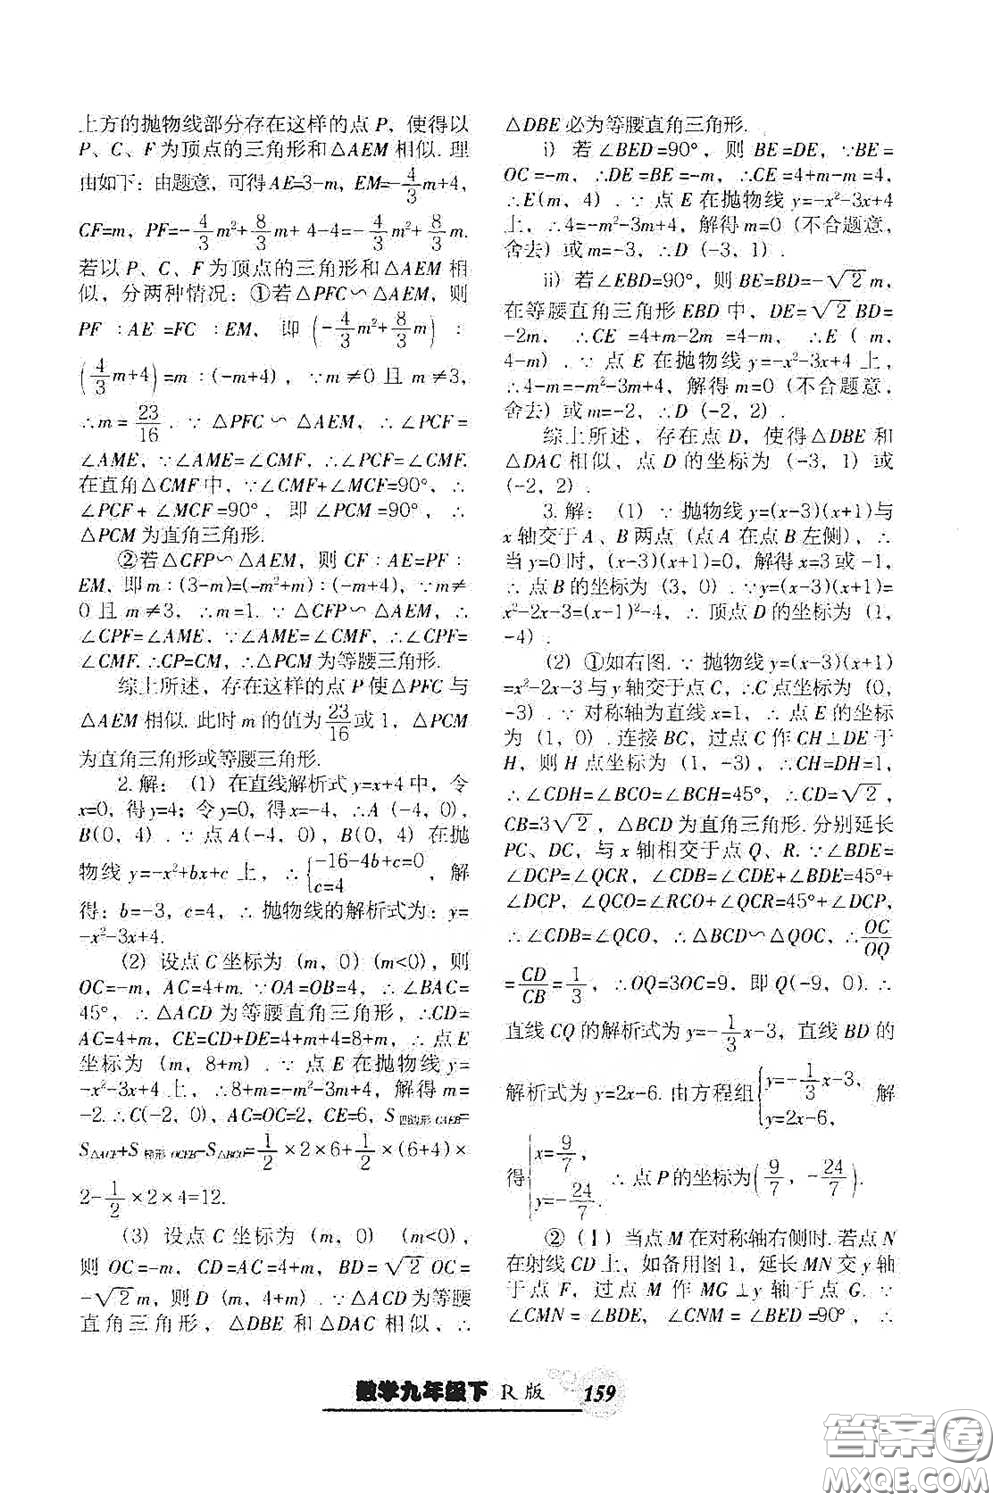 上方的抛物线部分存在这样的点 P，使得以
P、C、F 为顶点的三角形和△AEM 相似. 理
由如下：由题意，可得 AE=3-m, EM=-4/3m+4,
CF=m，PF=-4/3m²+8/3m+4-4=-4/3m²+8/3m.
若以 P、C、F 为顶点的三角形和△AEM 相
似，分两种情况：①若△PFC∽△AEM，则
PF：AE=FC：EM，即(-4/3m²+8/3m)：
(4/3m+4)=m：(-m+4)，∵m≠0 且 m≠3,
∴m=23/16. ∵ △PFC∽△AEM，∴∠PCF=
∠AME，∵∠AME=∠CMF，∴∠PCF=∠CMF.
在直角△CMF 中，∵∠CMF+∠MCF=90°，∴
∠PCF+∠MCF=90°，即∠PCM=90°，∴
△PCM 为直角三角形.
②若△CFP∽△AEM，则 CF：AE=PF：
EM，即 m：(3-m)=(-m²+m)：(-m+4)，∵m≠
0 且 m≠3，∴m=1. ∵ △CFP∽△AEM，∴
∠CPF=∠AME，∵∠AME=∠CMF，∴∠CPF=
∠CMF. ∴CP=CM，∴△PCM 为等腰三角形.
综上所述，存在这样的点 P 使△PFC 与
△AEM 相似. 此时 m 的值为23/16或 1，△PCM
为直角三角形或等腰三角形.
2. 解：（1）在直线解析式 y=x+4 中，令
x=0，得 y=4；令 y=0，得 x=-4，∴A（-4，0），
B(0，4）. ∵ 点 A（-4，0），B（0，4）在抛
物线 y=-x²+bx+c 上，∴{-16-4b+c=0 c=4，解
得：b=-3，c=4，∴ 抛物线的解析式为：y=
-x²-3x+4.
（2）设点 C 坐标为（m，0）(m<0)，则
OC=-m，AC=4+m. ∵OA=OB=4，∴∠BAC=
45°，∴△ACD 为等腰直角三角形，∴CD=
AC=4+m，CE=CD+DE=4+m+4=8+m，∴ 点 E
坐标为（m，8+m）. ∵ 点 E 在抛物线 y=
-x²-3x+4 上，∴8+m=-m²-3m+4，解得 m=
-2. ∴C(-2，0），AC=OC=2，CE=6，S四边形CAEB=
S△ACE+S梯形OCEB-S△BCO=1/2×2×6+1/2×(6+4)×
2-1/2×2×4=12.
（3）设点 C 坐标为（m，0）(m<0)，
则 OC=-m，CD=AC=4+m，BD=√2 OC=
-√2 m，则 D（m，4+m）. ∵△ACD 为等腰
直角三角形，△DBE 和△DAC 相似，∴
△DBE 必为等腰直角三角形.
i）若∠BED=90°，则 BE=DE，∵BE=
OC=-m，∴DE=BE=-m，∴CE=4+m-m=4,
∴E(m，4）. ∵ 点 E 在抛物线 y=-x²-3x+4
上，∴4=-m²-3m+4，解得 m=0（不合题意，
舍去）或 m=-3，∴D（-3，1）.
ii）若∠EBD=90°，则 BE=BD=-√2 m,
在等腰直角三角形 EBD 中，DE=√2 BD=
-2m，∴CE=4+m-2m=4-m，∴E（m，
4-m）. ∵ 点 E 在抛物线 y=-x²-3x+4 上，
∴4-m=-m²-3m+4，解得 m=0（不合题意，
舍去）或 m=-2，∴D（-2，2）.
综上所述，存在点 D，使得△DBE 和
△DAC 相似，点 D 的坐标为（-3，1）或
（-2，2）.
3. 解：（1）∵ 抛物线 y=(x-3)(x+1)与
x 轴交于 A、B 两点（点 A 在点 B 左侧），∴
当 y=0 时，(x-3)(x+1)=0，解得 x=3 或-1，
∴ 点 B 的坐标为（3，0）. ∵y=(x-3)(x+1)=
x²-2x-3=(x-1)²-4，∴ 顶点 D 的坐标为（1，
-4）.
（2）①如右图. ∵ 抛物线 y=(x-3)(x+1)
=x²-2x-3 与 y 轴交于点 C，∴C 点坐标为（0，
-3）. ∵ 对称轴为直线 x=1，∴ 点 E 的坐标
为（1，0）. 连接 BC，过点 C 作 CH⊥DE 于
H，则 H 点坐标为（1，-3），∴CH=DH=1，
∴∠CDH=∠BCO=∠BCH=45°，∴CD=√2，
CB=3√2，△BCD 为直角三角形. 分别延长
PC、DC，与 x 轴相交于点 Q、R. ∵∠BDE=
∠DCP=∠QCR，∠CDB=∠CDE+∠BDE=45°+
∠DCP，∠QCO=∠RCO+∠QCR=45°+∠DCP，
∴∠CDB=∠QCO，∴△BCD∽△QOC，∴OC/OQ
=CD/CB=1/3，∴OQ=3OC=9，即 Q(-9，0). ∴
直线 CQ 的解析式为 y=-1/3x-3，直线 BD 的
解析式为 y=2x-6. 由方程组{y=-1/3x-3, y=2x-6, 解
得{x=9/7, y=-24/7. ∴ 点 P 的坐标为(9/7，-24/7).
②（Ⅰ）当点 M 在对称轴右侧时. 若点 N
在射线 CD 上，如备用图 1，延长 MN 交 y 轴
于点 F，过点 M 作 MG⊥y 轴于点 G. ∵
∠CMN=∠BDE，∠CNM=∠BED=90°，∴
数学九年级下 R 版 159
答案圈
MXQE.COM